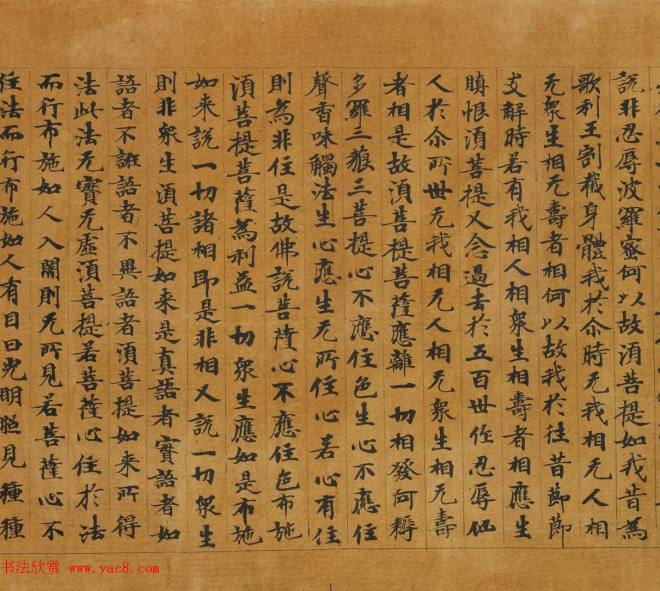 說非忍辱波羅蜜何以故湏菩提如我昔為
歌利王割截身體我於尒時无我相无人相
无衆生相无壽者相何以故我於往昔節節
支解時若有我相人相衆生相壽者相應生
瞋恨湏菩提又念過去於五百世作忍辱仙
人於尒所世无我相无人相无衆生相无壽
者相是故湏菩提菩薩應離一切相發阿耨
多羅三藐三菩提心不應住色生心不應住
聲香味觸法生心應生无所住心若心有住
則為非住是故佛說菩薩心不應住色布施
湏菩提菩薩為利益一切衆生應如是布施
如来說一切諸相即是非相又說一切衆生
則非衆生湏菩提如来是真語者實語者如
語者不誑語者不異語者湏菩提如来所得
法此法无實无虛湏菩提若菩薩心住於法
而行布施如人入闇則无所見若菩薩心不
住法而行布施如人有目日光明照見種種
书法欣赏 www.yac8.com